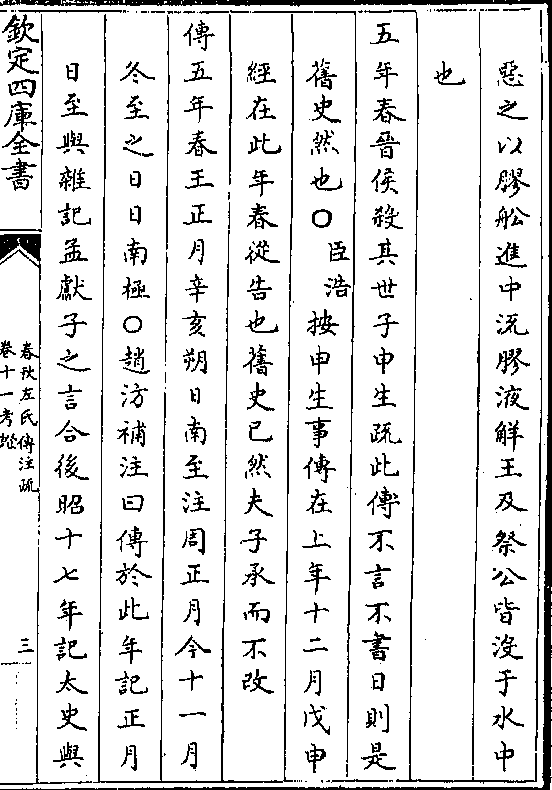 惡之以膠船進中流膠液解王及祭公皆沒于水中
也
五年春晉侯殺其世子申生疏此傳不言不書日則是
舊史然也〇臣浩按申生事傳在上年十二月戊申
經在此年春從告也舊史已然夫子承而不改
傳五年春王正月辛亥朔日南至注周正月今十一月
冬至之日日南極〇趙汸補注曰傳於此年記正月
日至與雜記孟獻子之言合後昭十七年記太史與
欽定四庫全書
春秋左氏傳注疏
卷十一考證
三